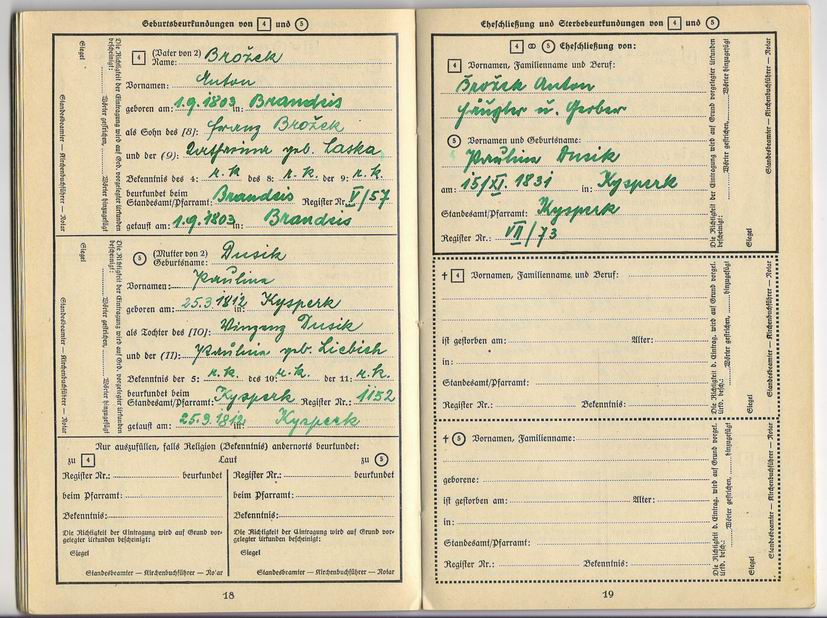 Geburtsbeurkundungen von 4 und 5
4 (Vater von 2) Name: Brožek
Vornamen: Anton
geboren am: 1.9.1803 in: Brandeis
als Sohn des (8): Franz Brožek
und der (9): Katharina geb. Laska
Bekenntnis des 4: r.k. des 8: r.k. der 9: r.k.
beurkundet beim
Standesamt/Pfarramt: Brandeis Register Nr. V/57
getauft am: 1.9.1803 in: Brandeis
Die Richtigkeit der Eintragung wird auf Grd. vorgelegter Urkunden
bescheinigt:
Wörter gestrichen, Wörter hinzugefügt
Siegel
Standesbeamter — Kirchenbuchführer — Notar
5 (Mutter von 2)
Geburtsname: Dusik
Vornamen: Paulina
geboren am: 25.3 1812 in: Kysperk
als Tochter des [10]: Winzenz Dusik
und der (11): Paulina geb. Liebich
Bekenntnis der 5: r.k. des 10: r.k. der 11: r.k.
beurkundet beim
Standesamt/Pfarramt: Kysperk Register Nr.: 1152
getauft am: 25.3.1812 in: Kysperk
Die Richtigkeit der Eintragung wird auf Grd. vorgelegter Urkunden
bescheinigt:
Wörter gestrichen, Wörter hinzugefügt
Siegel
Standesbeamter — Kirchenbuchführer — Notar
Nur auszufüllen, falls Religion (Bekenntnis) andernorts beurkundet:
zu 4 Laut zu 5
Register Nr.: beurkundet
beim Pfarramt:
Bekenntnis:
Die Richtigkeit der Eintragung wird auf Grund vor-
gelegter Urkunden bescheinigt:
Siegel
Standesbeamter — Kirchenbuchführer — Notar
Register Nr.: beurkundet
beim Pfarramt:
Bekenntnis:
Die Richtigkeit der Eintragung wird auf Grund vor-
gelegter Urkunden bescheinigt:
Siegel
Standesbeamter — Kirchenbuchführer — Notar
18
Eheschließung und Sterbebeurkundungen von 4 und 5
4 ∞ 5 Eheschließung von:
4 Vornamen, Familienname und Beruf:
Brožek Anton
Häugler u. Gerber
5 Vornamen und Geburtsname:
Paulina Dusik
am: 15/XI. 1831 in: Kysperk
Standesamt/Pfarramt: Kysperk
Register Nr.: VII/73
Die Richtigkeit der Eintragung wird auf Grund vorgelegter Urkunden
bescheinigt:
Wörter gestrichen, Wörter hinzugefügt
Siegel
Standesbeamter — Kirchenbuchführer — Notar
† 4 Vornamen, Familienname und Beruf:
ist gestorben am: Alter:
in:
Standesamt/Pfarramt:
Register Nr.: Bekenntnis:
Die Richtigkeit d. Eintrag. wird auf Grund vorgel.
Urkd. besch.:
Wörter gestrichen, Wörter hinzugefügt
Siegel
Standesbeamter — Kirchenbuchführer — Notar
† 5 Vornamen, Familienname:
geborene:
ist gestorben am: Alter:
in:
Standesamt/Pfarramt:
Register Nr.: Bekenntnis:
Die Richtigkeit d. Eintrag. wird auf Grund vorgel.
Urkd. besch.:
Wörter gestrichen, Wörter hinzugefügt
Siegel
Standesbeamter — Kirchenbuchführer — Notar
19